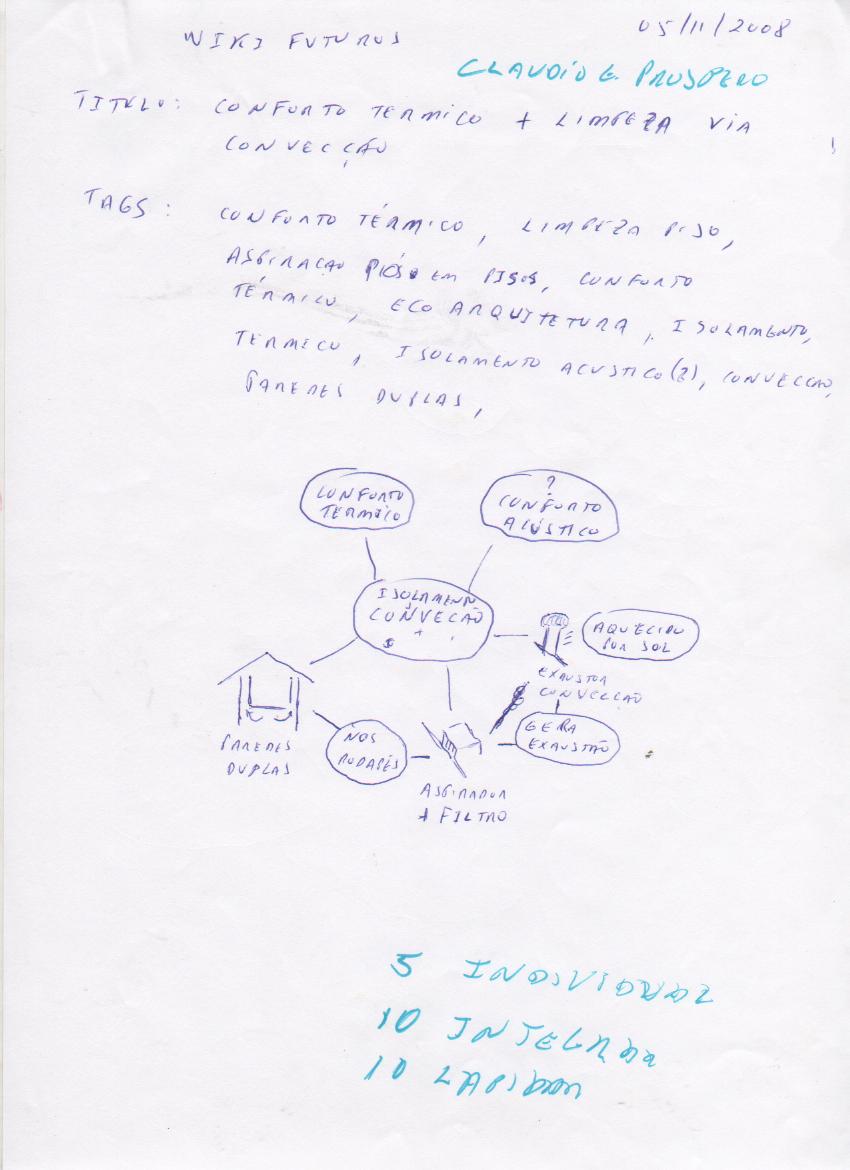 WIKI FUTUROS
05/11/2008
CLAUDIO E. PROSPERO
TITULO: CONFORTO TERMICO + LIMPEZA VIA
CONVECÇÃO
TAGS: CONFORTO TÉRMICO, LIMPEZA PISO,
ASPIRAÇÃO EM PISOS, CONFORTO
TÉRMICO, ECO ARQUITETURA, ISOLAMENTO,
TERMICO, ISOLAMENTO ACUSTICO(?), CONVECÇÃO,
PAREDES DUPLAS,
CONFORTO
TERMICO
?
CONFORTO
ACÚSTICO
ISOLAMENTO
CONVECÃO
+
AQUECIDO
POR SOL
EXAUSTOR
CONVECÇÃO
PAREDES
DUPLAS
NOS
RODAPÉS
GERA
EXAUSTÃO
ASPIRADOR
+ FILTRO
5 INDIVIDUAL
10 INTEGRAR
10 LAPIDAR